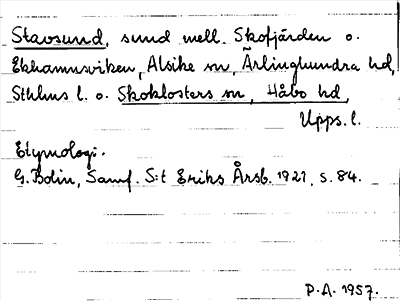 Stavsund, sund mell. Skofjärden o.
Ekhamnsviken, Alsike sn, Ärlinghundra hd,
Sthlms l. o. Skoklosters sn, Håbo hd,
Upps. l.
Etymologi.
G. Bolin, Samf. S:t Eriks Årsb. 1921, s. 84.
P.A. 1957.